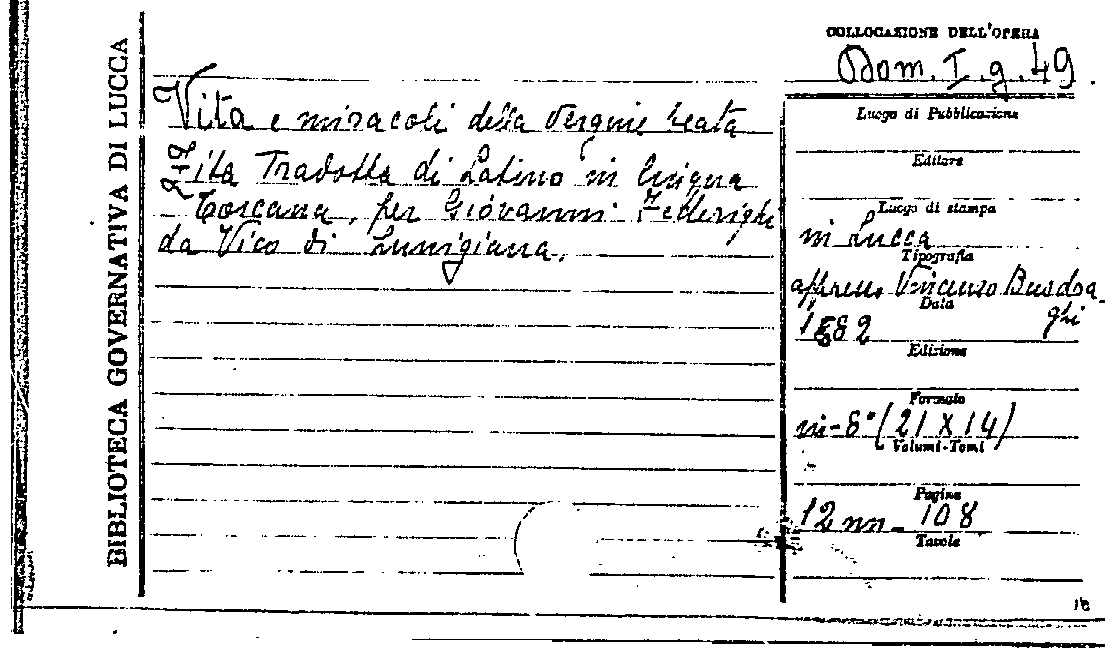 BIBLIOTECA GOVERNATIVA DI LUCCA
Vita e miracoli della Vergine beata
Zita Tradotta di Latino in lingua
Toscana, per Giovanni
da Vico di Lunigiana.
COLLOCAZIONE DELL'OPERA
Dom. I. g. 49
Luogo di Pubblicazione
Editore
Luogo di stampa
in Lucca
Tipografia
appresso Vincenzo Busdra
ghi
Data
1582
Edizione
Formato
in-8° (21 X 14)
Volumi-Tomi
Pagine
12 nn - 108
Tavole